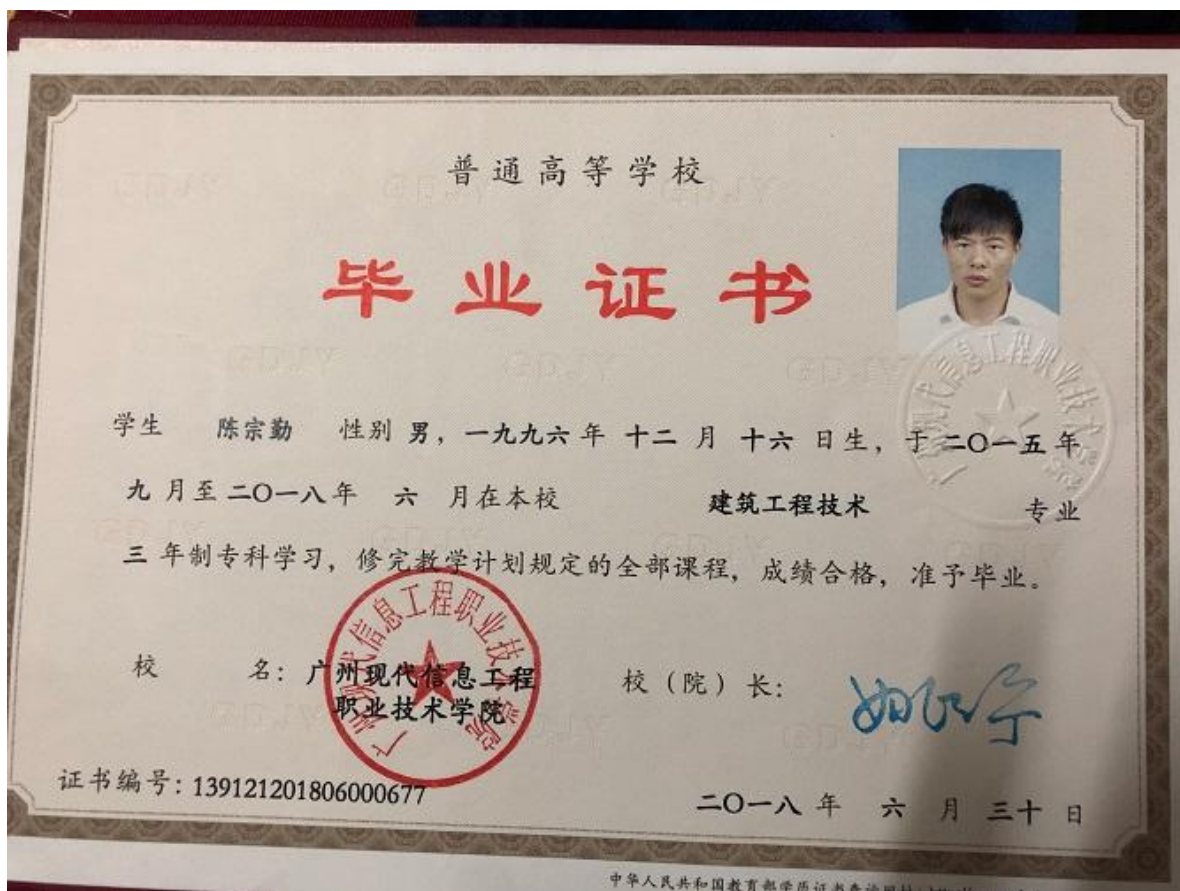 普通高等学校
毕业证书
学生 陈宗勤 性别 男，一九九六年 十二 月 十六 日生，于 二〇一五年
九 月至 二〇一八年 六 月在本校 建筑工程技术 专业
三 年制专科学习，修完教学计划规定的全部课程，成绩合格，准予毕业。
校 名：广州现代信息工程
职业技术学院
校（院）长：
广州现代信息工程职业技术学院
广州现代信息工程职业技术学院
证书编号：139121201806000677
二〇一八 年 六 月 三十 日
中华人民共和国教育部学历证书查询网址